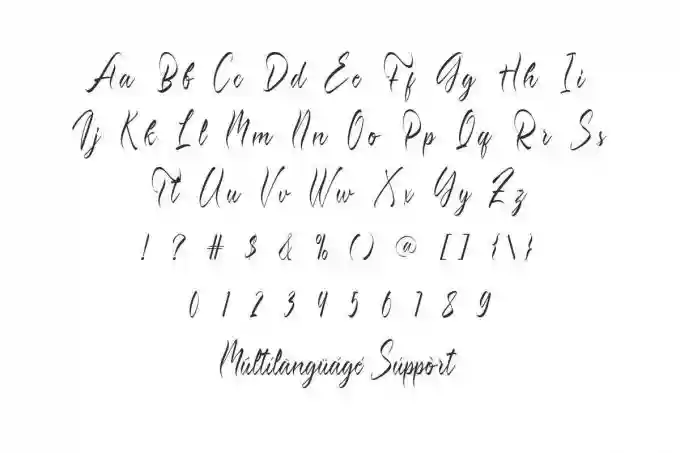 Aa Bb Cc Dd Ee Ff Gg Hh Ii
Jj Kk Ll Mm Nn Oo Pp Qq Rr Ss
Tt Uu Vv Ww Xx Yy Zz
! ? # $ & % ( ) @ [ ] { \ }
0 1 2 3 4 5 6 7 8 9
Múltílàngüágé Súppòrt